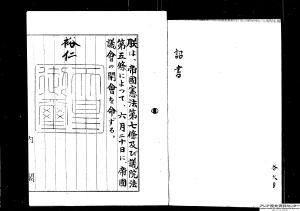 詔書
朕は、帝國憲法第七條及び議院法
第五條によつて、六月二十日に、帝國
議會の開會を命ずる。
裕仁
内閣